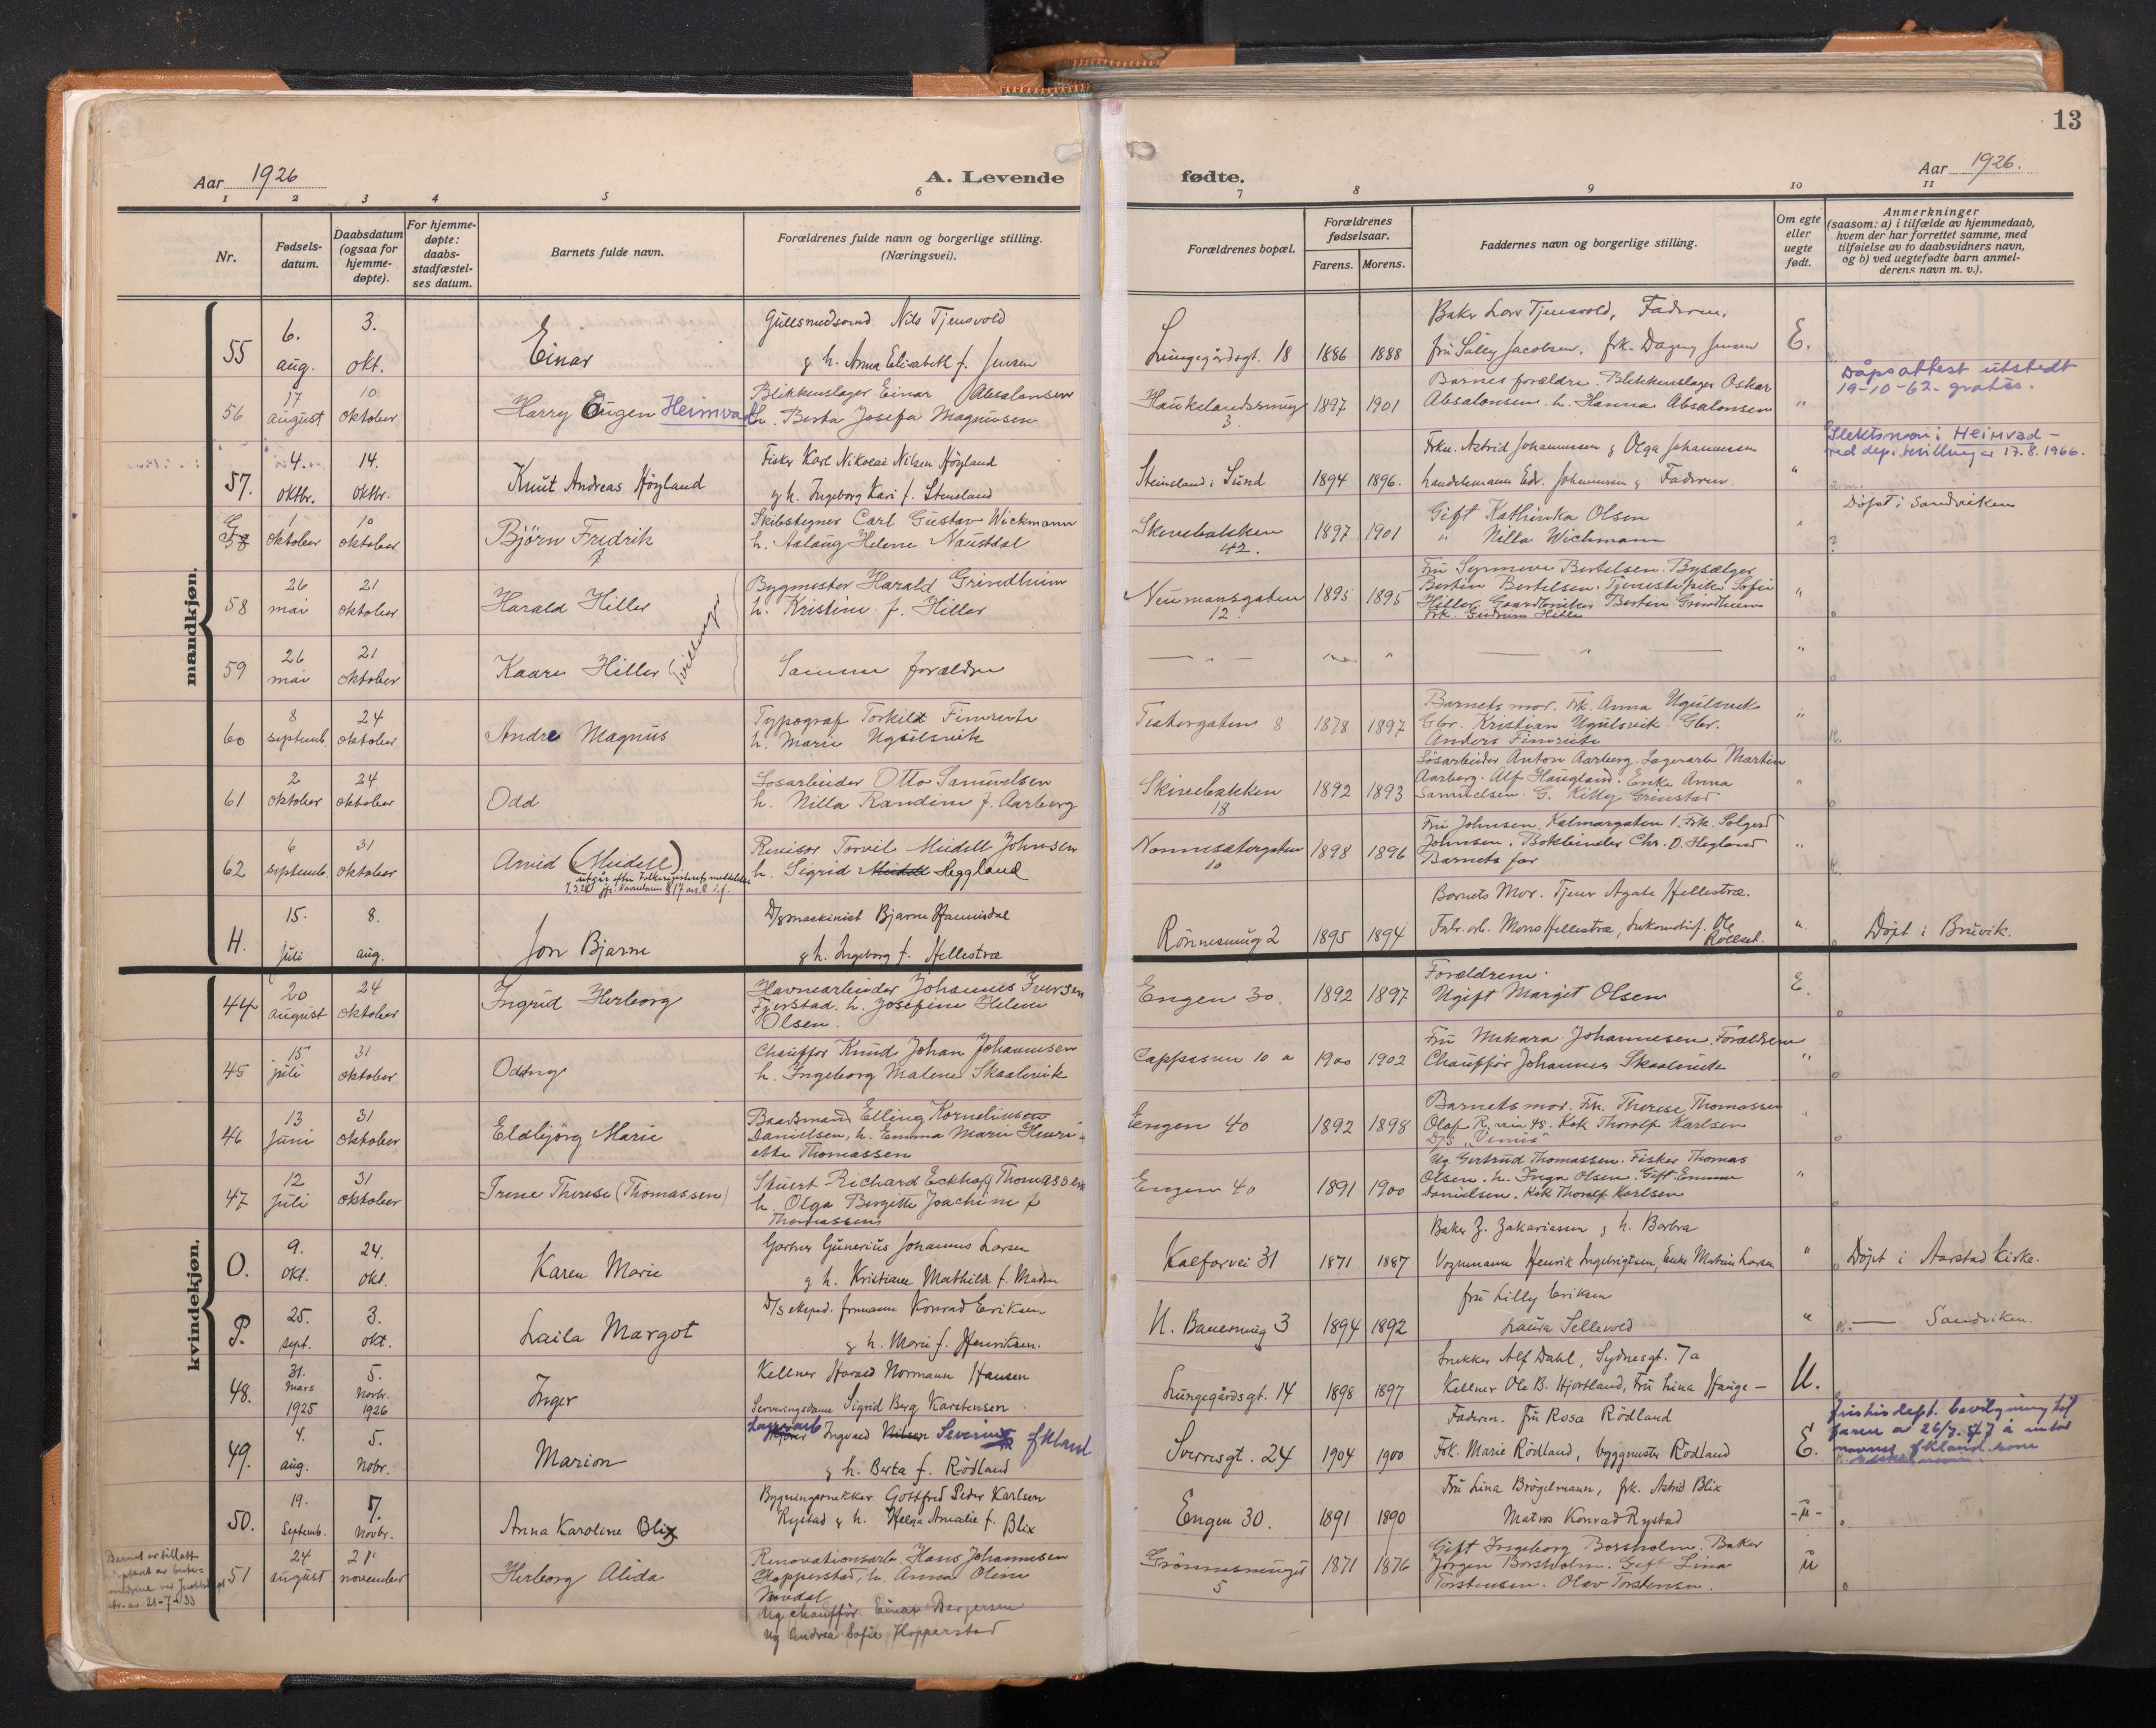 13
Aar 1926
A. Levende
fødte.
Aar 1926.
1 2 3 4 5 6 7 8 9 10 11
Nr.
Fødsels-
datum.
Daabsdatum
(ogsaa for
hjemme-
døpte).
For hjemme-
døpte:
daabs-
stadfæstel-
ses datum.
Barnets fulde navn.
Forældrenes fulde navn og borgerlige stilling.
(Næringsvei).
Forældrenes bopæl.
Forældrenes
fødselsaar.
Farens. Morens.
Faddernes navn og borgerlige stilling.
Om egte
eller
uegte
født.
Anmerkninger
(saasom: a) i tilfælde av hjemmedaab,
hvem der har forrettet samme, med
tilføielse av to daabsvidners navn,
og b) ved uegtefødte barn anmel-
derens navn m. v.).
mandkjøn.
55 6. aug. 3. okt. Einar
Gullsmedsvend Nils Tjensvold
g h. Anna Elisabeth f. Jensen
Lungegårdsgt. 18 1886 1888
Baker Lars Tjensvold, Faderen,
fru Sally Jacobsen, frk. Dagny Jensen
E.
56 17 august 10 oktober Harry Eugen Heimvad
Blikkenslager Einar Absalonsen
h. Berta Josefa Magnussen
Haukelandsmug 3. 1897 1901
Barnes forældre. Blikkenslager Oskar
Absalonsen h. Hanna Absalonsen
"
Dåpsattest utstedt
19-10-62. gratis.
Slektsnavn: Heimvad -
ved dep. bevilling av 17.8.1966.
57. 4. oktbr. 14. oktbr. Knut Andreas Høyland
Fisker Karl Nikolai Nilsen Høyland
g h. Ingeborg Kari f. Stensland
Steinsland i Sund 1894 1896.
Frkn. Astrid Johannessen g Olga Johannessen
handelsmann Edv. Johannessen g Faderen.
"
G 1 oktober 10 oktober Bjørn Fredrik
Skibstegner Carl Gustav Wickmann
h. Aslaug Helene Naustdal
Skivebakken 42. 1897 1901
Gift Kathinka Olsen
" Nilla Wichmann
"
Døpt i Sandviken
58 26 mai 21 oktober Harald Hiller
Bygmester Harald Grindheim
h. Kristine f. Hiller
Tvillinger
Neumansgaten 12. 1895 1895
Fru Synnøve Bertelsen. Bysælger
Bertin Bertelsen. Tjenestepike Sofie
Hiller. Gaardbruker Bertin Grindheim
Frk. Gudrun Hille
"
59 26 mai 21 oktober Kaare Hiller
Samme forældre
"
60 8 septemb. 24 oktober Andre Magnus
Typograf Torkild Finsrette
h. Marie Ugulsvik
Teatergaten 8 1878 1897
Barnets mor. Frk. Anna Ugulsvik
Gbr. Kristian Ugulsvik. Gbr.
Anders
"
61 2 oktober 24 oktober Odd
Løsarbeider Otto Samuelsen
h. Nilla Randine f. Aarberg
Skivebakken 18 1892 1893
Løsarbeider Anton Aarberg. Lagerarb. Martin
Aarberg. Alf Haugland. Enke Anna
Samuelsen. G. Kitty Grimstad
"
62 6 septemb. 31 oktober Arvid (Meidell)
utgår efter Folkeregisterets meddelelse
Revisor Torvil Meidell Johnsen
h. Sigrid Meidell Heggland
Nonnesætergaten 10 1898 1896
Fru Johnsen, Kalmargaten 1. Frk. Solgerd
Johnsen. Bokbinder Chr. O. Hegland
Barnets far
"
H. 15. juli 8. aug. Jon Bjarne
D/s maskinist Bjarne Hannisdal
g h. Ingeborg f. Hellestræ
Rønnesmug 2 1895 1894
Barnets Mor. Tjener Agate Hellestræ.
Fabr. arb. Mons Hellestræ, Lokomotivf. Ole
"
Døpt i Bruvik.
kvindekjøn.
44 20 august 24 oktober Ingrid Herborg
Havnearbeider Johannes Iversen
Fjerstad. h. Josefine Helene
Olsen.
Engen 30. 1892 1897
Forældrene.
Ugift Margit Olsen
E.
45 15 juli 31 oktober Oddny
Chauffør Knud Johan Johannesen
h. Ingeborg Malene Skaalevik
Cappesmu 10 a 1900 1902
Fru Mekara Johannesen. Forældrene
Chauffør Johannes Skaalevik
"
46 13 juni 31 oktober Eldbjörg Marie
Baadsmand Elling Korneliussen
Danielsen, h. Emma Marie Henri-
ette Thomassen
Engen 40 1892 1898
Barnets mor. Frk. Therese Thomassen
Olaf R. vin 48. Kok Thorolf Karlsen
D/S "Venus"
"
47 12 juli 31 oktober Irene Therese (Thomassen)
Stuert Richard Eckhoff Thomassen
h. Olga Bergitte Joachime f
Thomassen
Engen 40 1891 1900
Ug. Gertrud Thomassen. Fisker Thomas
Olsen. h. Inga Olsen. Gift Emma
Danielsen. Kok Thorolf Karlsen
"
O. 9. okt. 24. okt. Karen Marie
Gartner Gunerius Johannes Larsen
g h. Kristiane Mathilde f. Madsen
Kalfarvei 31 1871 1887
Baker Z. Zakariassen g h. Barbra
Vognmann Henrik Ingebrigtsen, Enke Matine Larsen
"
Døpt i Aarstad Kirke.
P. 25. sept. 3. okt. Laila Margot
D/s eksped. formann Konrad Eriksen
g h. Marie f. Henriksen.
N. Bauersmug 3 1894 1892
fru Lilly Eriksen
Laura Sellevold
"
Sandviken.
48. 31. Mars 1925 5. Novbr. 1926 Inger
Kellner Harald Normann Hansen
Serveringsdame Sigrid Berg Karstensen
Lungegårdsgt. 14 1898 1897
Snekker Alf Dahl, Sydnesgt. 7a
Kellner Ole B. Hjortland, Fru Lina Hauge -
U.
49. 4. aug. 5. Nobr. Marion
Lagerarb Ingvald Nilsen Severin Økland
g h. Berta f. Rødland
Sverresgt. 24 1904 1900
Faderen. Fru Rosa Rødland
Frk. Marie Rødland, byggmester Rødland
E.
Justisdept. bevilgning til
faren av 26/7.47 å anta
navnet Økland som
50. 19. Septemb. 7. Novbr. Anna Karoline Blix
Bygningssnekker Gottfred Peder Karlsen
Rystad g h. Helga Amalie f. Blix
Engen 30. 1891 1890
Fru Lina Brögelmann, frk. Astrid Blix
Matros Konrad Rystad
-"-
51 24 august 21 november Herborg Alida
Renovationsarb. Hans Johannesen
Hopperstad, h. Anna Oline
Ug chauffør Einar Bergersen
Ug Andrea Sofie Hopperstad
Grønnesmuget 5 1871 1876
Gift Ingeborg Borsholm. Baker
Jørgen Borsholm. Gift Lina
Torstensen. Olav Torstensen.
Barnet er tillatt
av 21-7-33